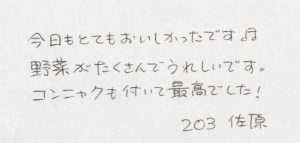 今日もとてもおいしかったです♫
野菜がたくさんでうれしいです。
コンニャクも付いて最高でした！
203 佐原